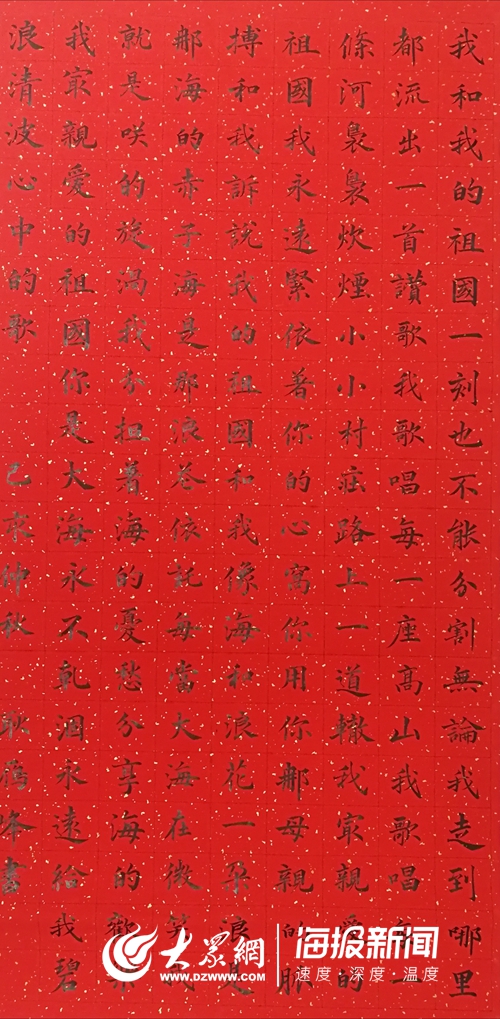 我和我的祖國一刻也不能分割無論我走到哪里
都流出一首讚歌我歌唱每一座高山我歌唱每一
條河裊裊炊煙小小村莊路上一道轍我㝡親愛的
祖國我永遠緊依著你的心窩你用你那母親的脈
搏和我訴說我的祖國和我像海和浪花一朵浪是
那海的赤子海是那浪卷依託每當大海在微笑我
就是咲的旋渦我分担著海的憂愁分享海的歡樂
我㝡親愛的祖國你是大海永不乾涸永遠給我碧
浪清波心中的歌 己亥仲秋 耿 峰書
大眾網
WWW.DZWWW.COM
海报新闻
速度·深度·温度